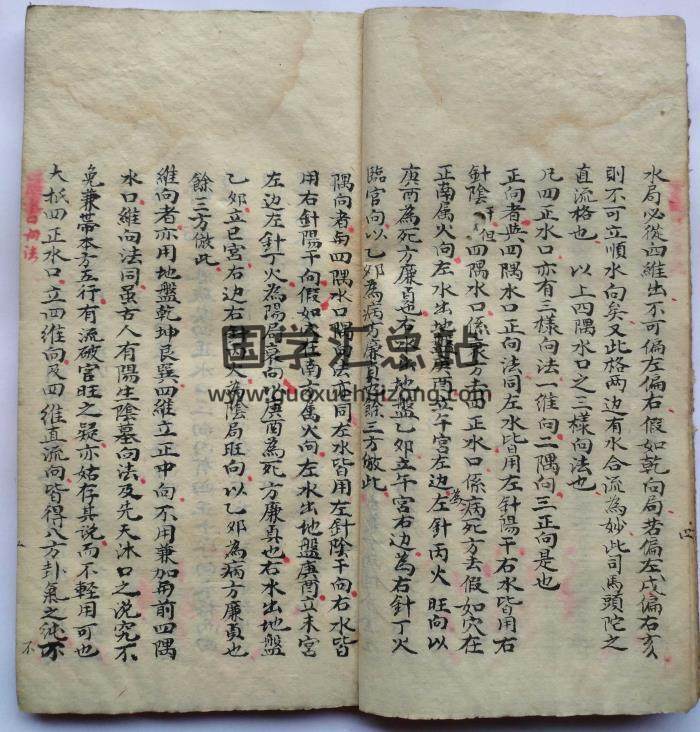 水局必從四維出不可偏左偏右假如乾向局若偏左戌偏右亥
則不可立順水向矣又此格两边有水合流為妙此司馬頭陀之
直流格也　以上四隅水口之三樣向法也
凡四正水口亦有三樣向法一維向二隅向三正向是也
正向者與四隅水口正向法同左水皆用左針陽干右水皆用右
針陰干但四隅水口係墓方去四正水口係病死方去假如穴在
正南离火向左水出地盤庚酉立午宮左边為左針丙火旺向以
庚酉為死方廉貞也右水出地盤乙卯立午宮右边為右針丁火
臨官向以乙卯為病方廉貞也餘三方倣此
隅向者與四隅水口隅向法亦同左水皆用左針陰干向右水皆
用右針陽干向假如穴在南方离火向左水出地盤庚酉立未宮
左边左針丁火為陽局衰向以庚酉為死方廉真也右水出地盤
乙卯立巳宮右边右針丙火為陰局旺向以乙卯為病方廉貞也
餘三方倣此
維向者亦用地盤乾坤艮巽四維立正中向不用兼加與前四隅
水口維向法同虽古人有陽生陰墓向法及先天水口之说究不
免兼帶本方五行有流破官旺之疑亦姑存其说而不輕用可也
大抵四正水口立四維向及四維直流向皆得八方卦氣之純不
不
国学汇总站
www.guoxuehuizong.com